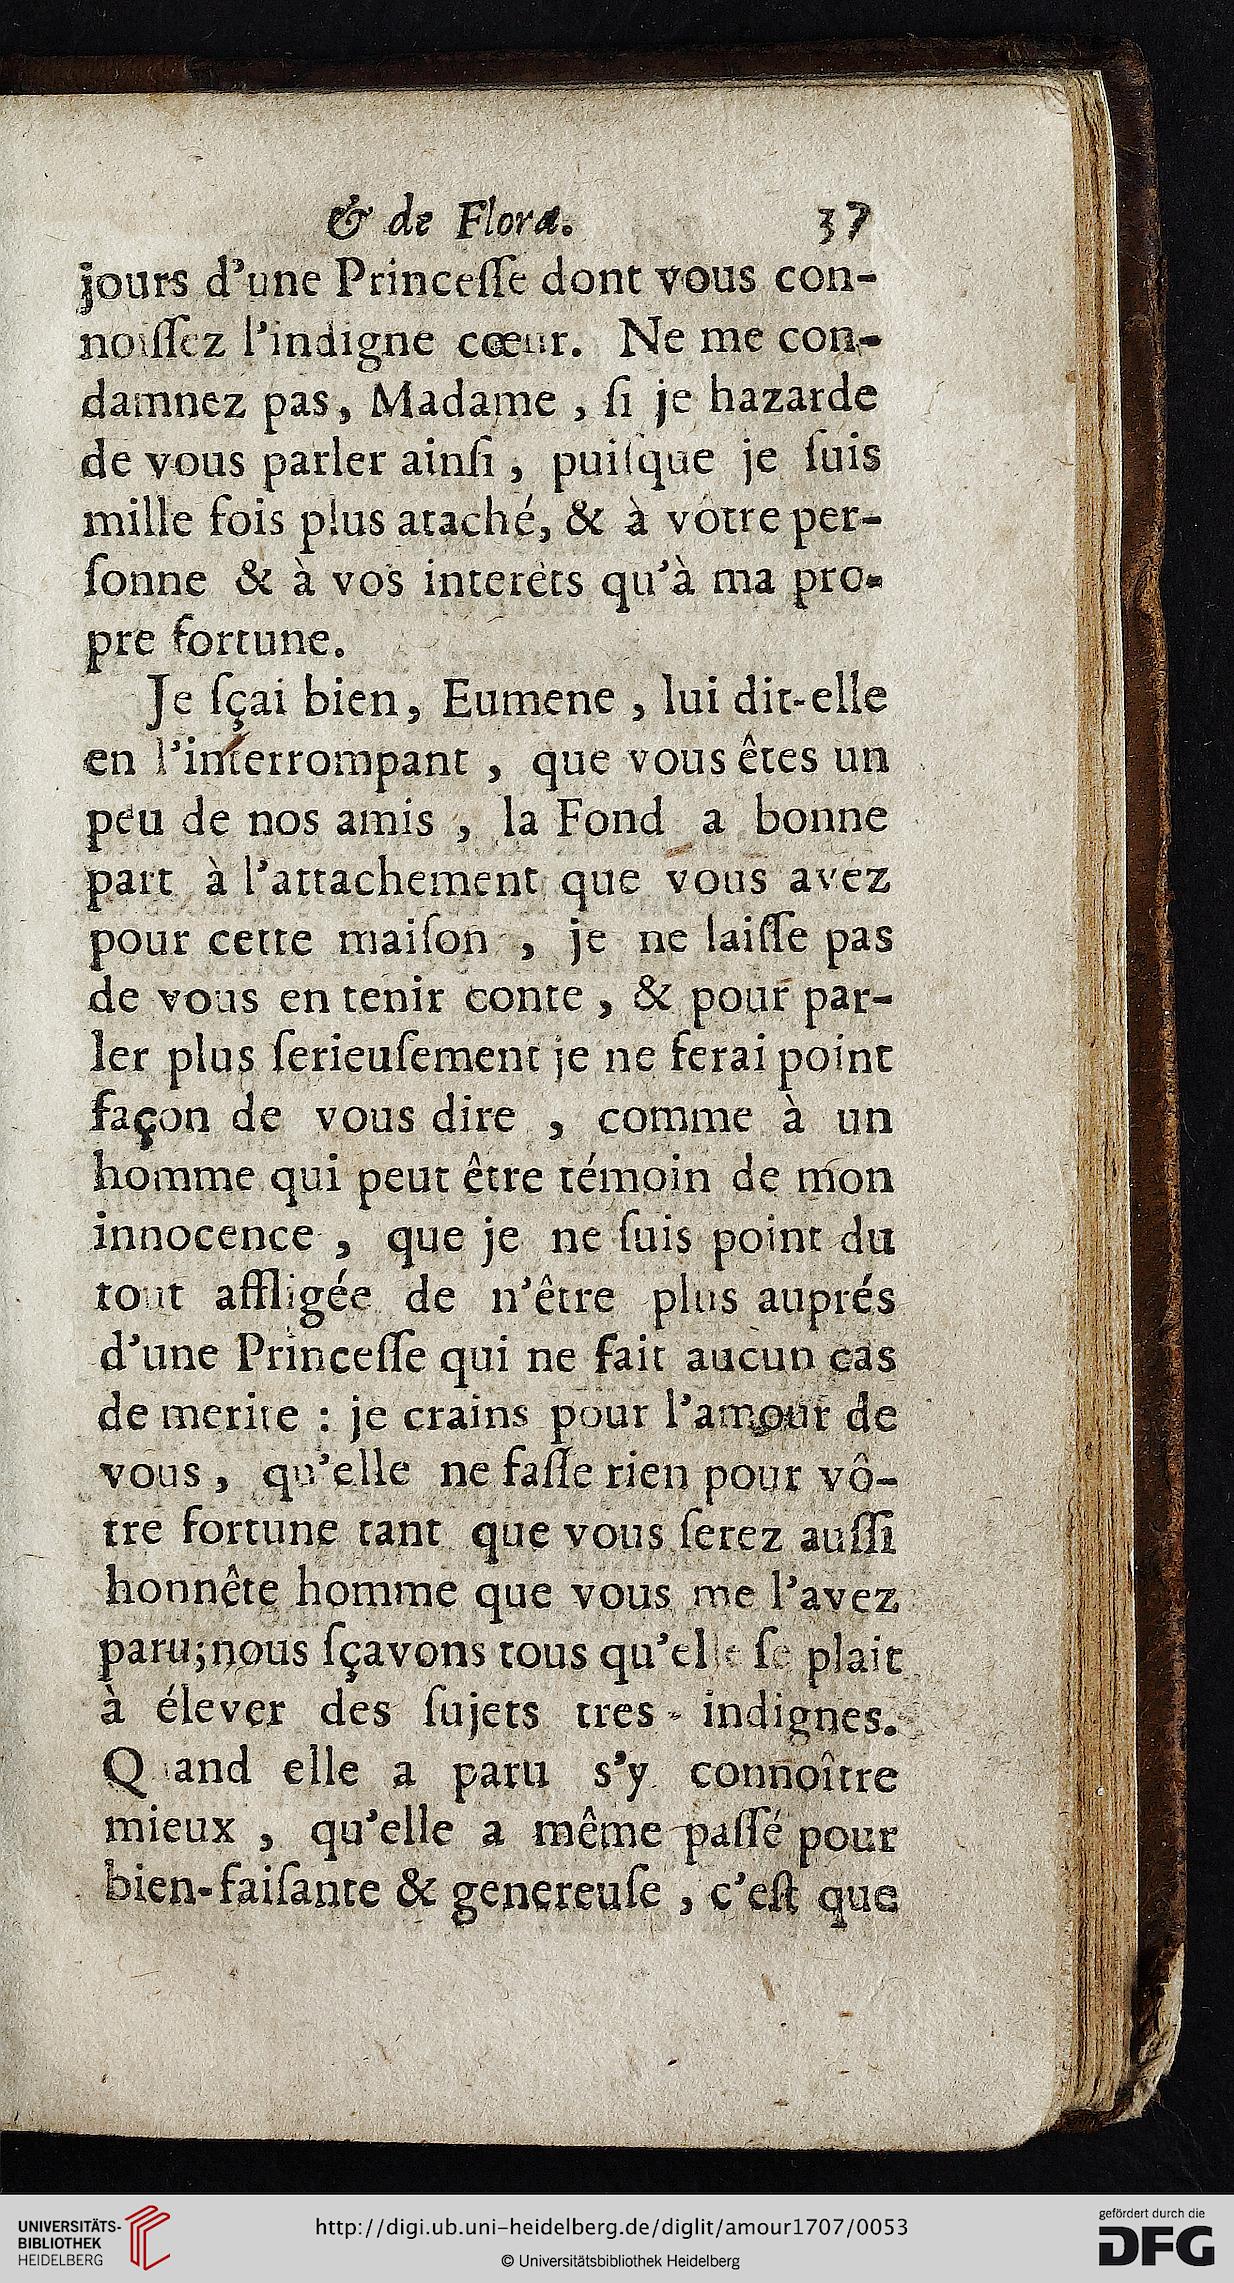 & de Flora. 37
jours d'une Princeſſe dont vous con-
noiſſez l'indigne cœur. Ne me con-
damnez pas, Madame , ſi je hazarde
de vous parler ainſi , puiſque je ſuis
mille fois plus ataché, & à vôtre per-
ſonne & à vos interêts qu'à ma pro-
pre fortune.
Je ſçai bien, Eumene , lui dit-elle
en l'interrompant , que vous êtes un
peu de nos amis , la Fond a bonne
part à l'attachement que vous avez
pour cette maiſon , je ne laiſſe pas
de vous en tenir conte , & pour par-
ler plus ſerieuſement je ne ferai point
façon de vous dire , comme à un
homme qui peut être témoin de mon
innocence , que je ne ſuis point du
tout affligée de n'être plus auprés
d'une Princeſſe qui ne fait aucun cas
de merite : je crains pour l'amour de
vous , qu'elle ne faſſe rien pour vô-
tre fortune tant que vous ſerez auſſi
honnête homme que vous me l'avez
paru;nous ſçavons tous qu'elle ſe plait
à élever des ſujets tres - indignes.
Quand elle a paru s'y connoître
mieux , qu'elle a même paſſé pour
bien-faiſante & genereuſe , c'eſt que
UNIVERSITÄTS-
BIBLIOTHEK
HEIDELBERG
http://digi.ub.uni-heidelberg.de/diglit/amour1707/0053
© Universitätsbibliothek Heidelberg
gefördert durch die
DFG